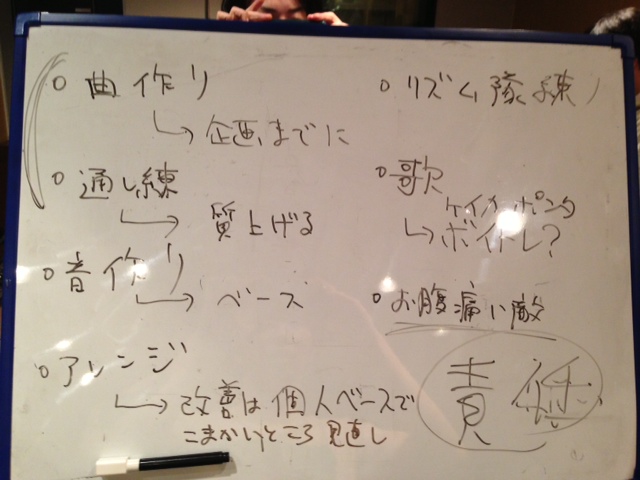 ○ 曲作り
↳ 企画までに
○ 通し練
↳ 質上げる
○ 音作り
↳ ベース
○ アレンジ
↳ 改善は個人ベースで
こまかいところ見直し
○ リズム隊練
○ 歌
↳ ボイトレ?
○ お腹痛い敵
責任